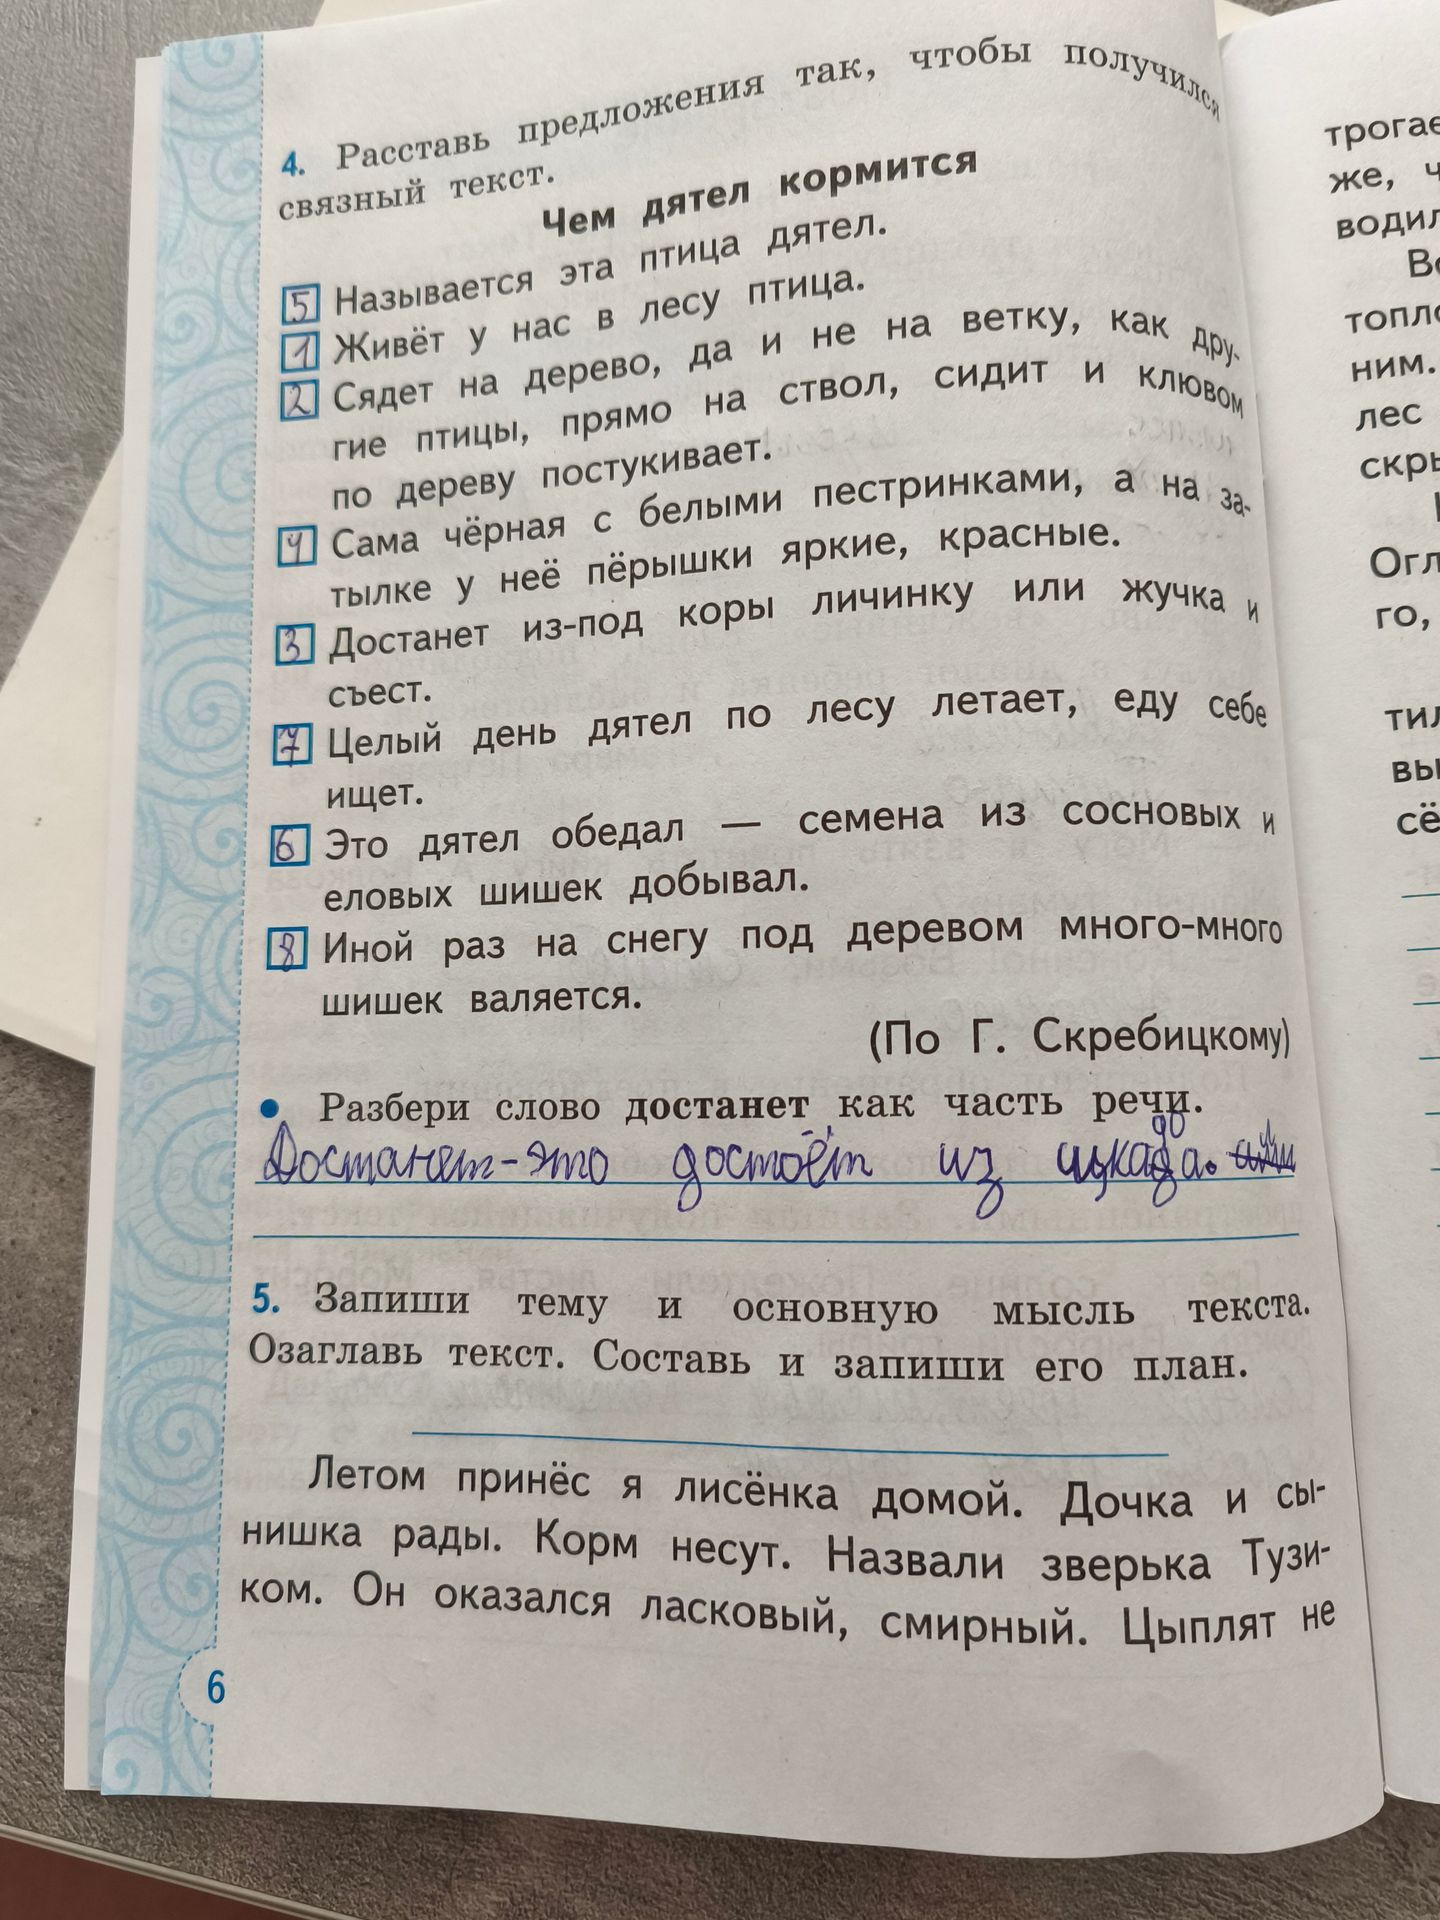 4. Расставь предложения так, чтобы получился
связный текст.
Чем дятел кормится
5 Называется эта птица дятел.
1 Живёт у нас в лесу птица.
2 Сядет на дерево, да и не на ветку, как дру-
гие птицы, прямо на ствол, сидит и клювом
по дереву постукивает.
4 Сама чёрная с белыми пестринками, а на за-
тылке у неё пёрышки яркие, красные.
3 Достанет из-под коры личинку или жучка и
съест.
7 Целый день дятел по лесу летает, еду себе
ищет.
6 Это дятел обедал — семена из сосновых и
еловых шишек добывал.
8 Иной раз на снегу под деревом много-много
шишек валяется.
(По Г. Скребицкому)
• Разбери слово достанет как часть речи.
Достанет-это достоёт из
5. Запиши тему и основную мысль текста.
Озаглавь текст. Составь и запиши его план.
Летом принёс я лисёнка домой. Дочка и сы-
нишка рады. Корм несут. Назвали зверька Тузи-
ком. Он оказался ласковый, смирный. Цыплят не
6
трогае
же, ч
водил
Во
топло
ним.
лес
скры
Огл
го,
тил
вы
сё